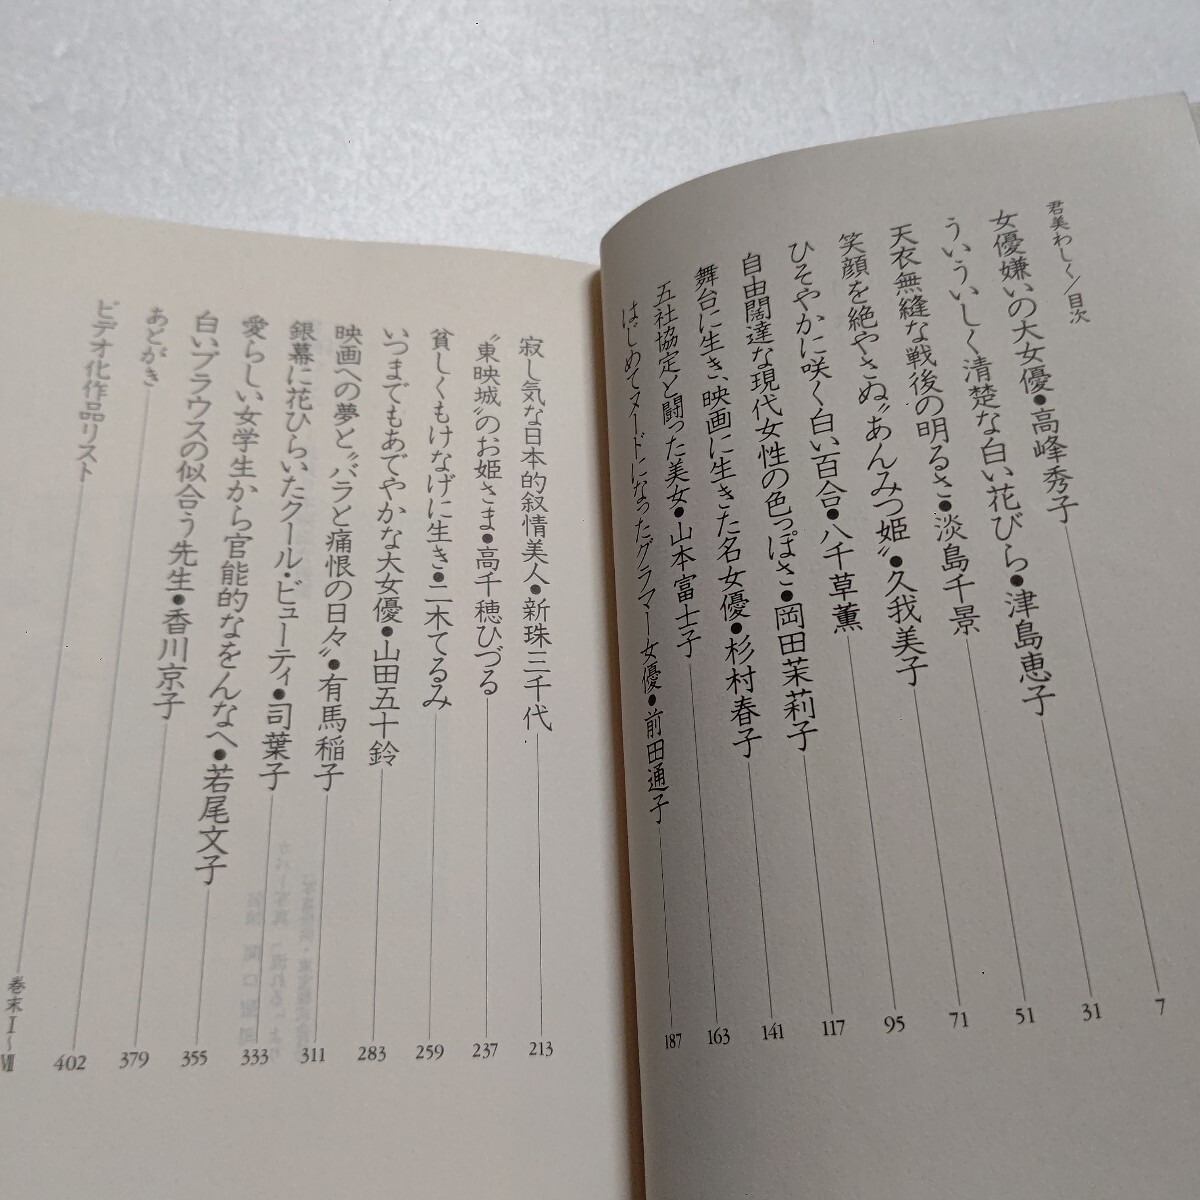 君美わしく/目次
女優嫌いの大女優●高峰秀子 7
ういういしく清楚な白い花びら●津島恵子 31
天衣無縫な戦後の明るさ●淡島千景 51
笑顔を絶やさぬ〝あんみつ姫〟●久我美子 71
ひそやかに咲く白い百合●八千草薫 95
自由闊達な現代女性の色っぽさ●岡田茉莉子 117
舞台に生き、映画に生きた名女優●杉村春子 141
五社協定と闘った美女●山本富士子 163
はじめてヌードになったグラマー女優●前田通子 187
寂し気な日本的叙情美人●新珠三千代 213
〝東映城〟のお姫さま●高千穂ひづる 237
貧しくもけなげに生き●二木てるみ 259
いつまでもあでやかな大女優●山田五十鈴 283
映画への夢と〝バラと痛恨の日々〟●有馬稲子 311
銀幕に花ひらいたクール・ビューティ●司葉子 333
愛らしい女学生から官能的なをんなへ●若尾文子 355
白いブラウスの似合う先生●香川京子 379
あとがき 402
ビデオ化作品リスト 巻末Ⅰ〜Ⅶ